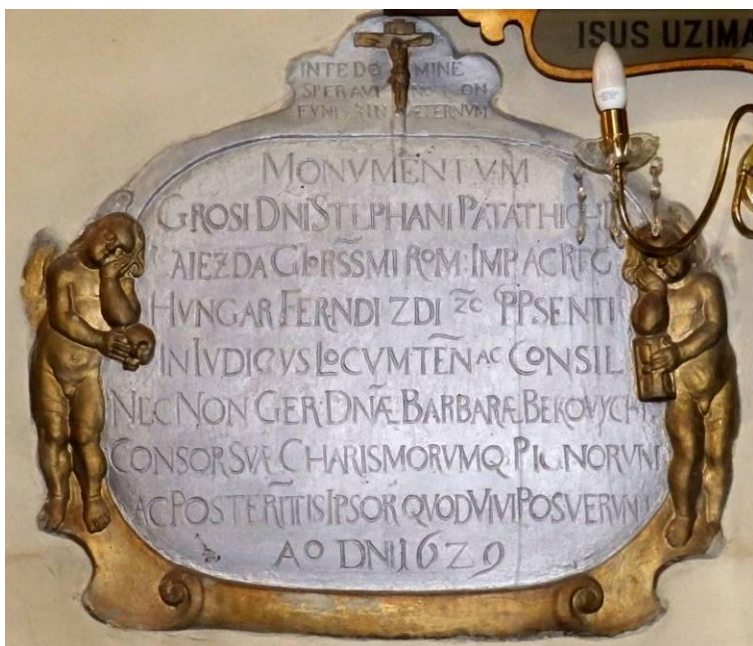 ISUS UZIMA
IN TE DO MINE
SPERAVI NON CON
FVNDAR IN ÆTERNVM
MONVMENTVM
GROSI DNI STEPHANI PATATHICH
GLORSS̃MI ROM: IMP AC REG
HVNGAR FERNDI ZDI PPSENTI
IN IVDICIIS LOCVMTEÑ AC CONSIL
NEC NON GER: DNÆ̃ BARBARÆ
CONSOR SVÆ CHARISMORVMQ PIGNORVM
AC POSTERĨTTIS IPSOR̃ QVOD VIVI POSVERVNT
AO DNI 1629